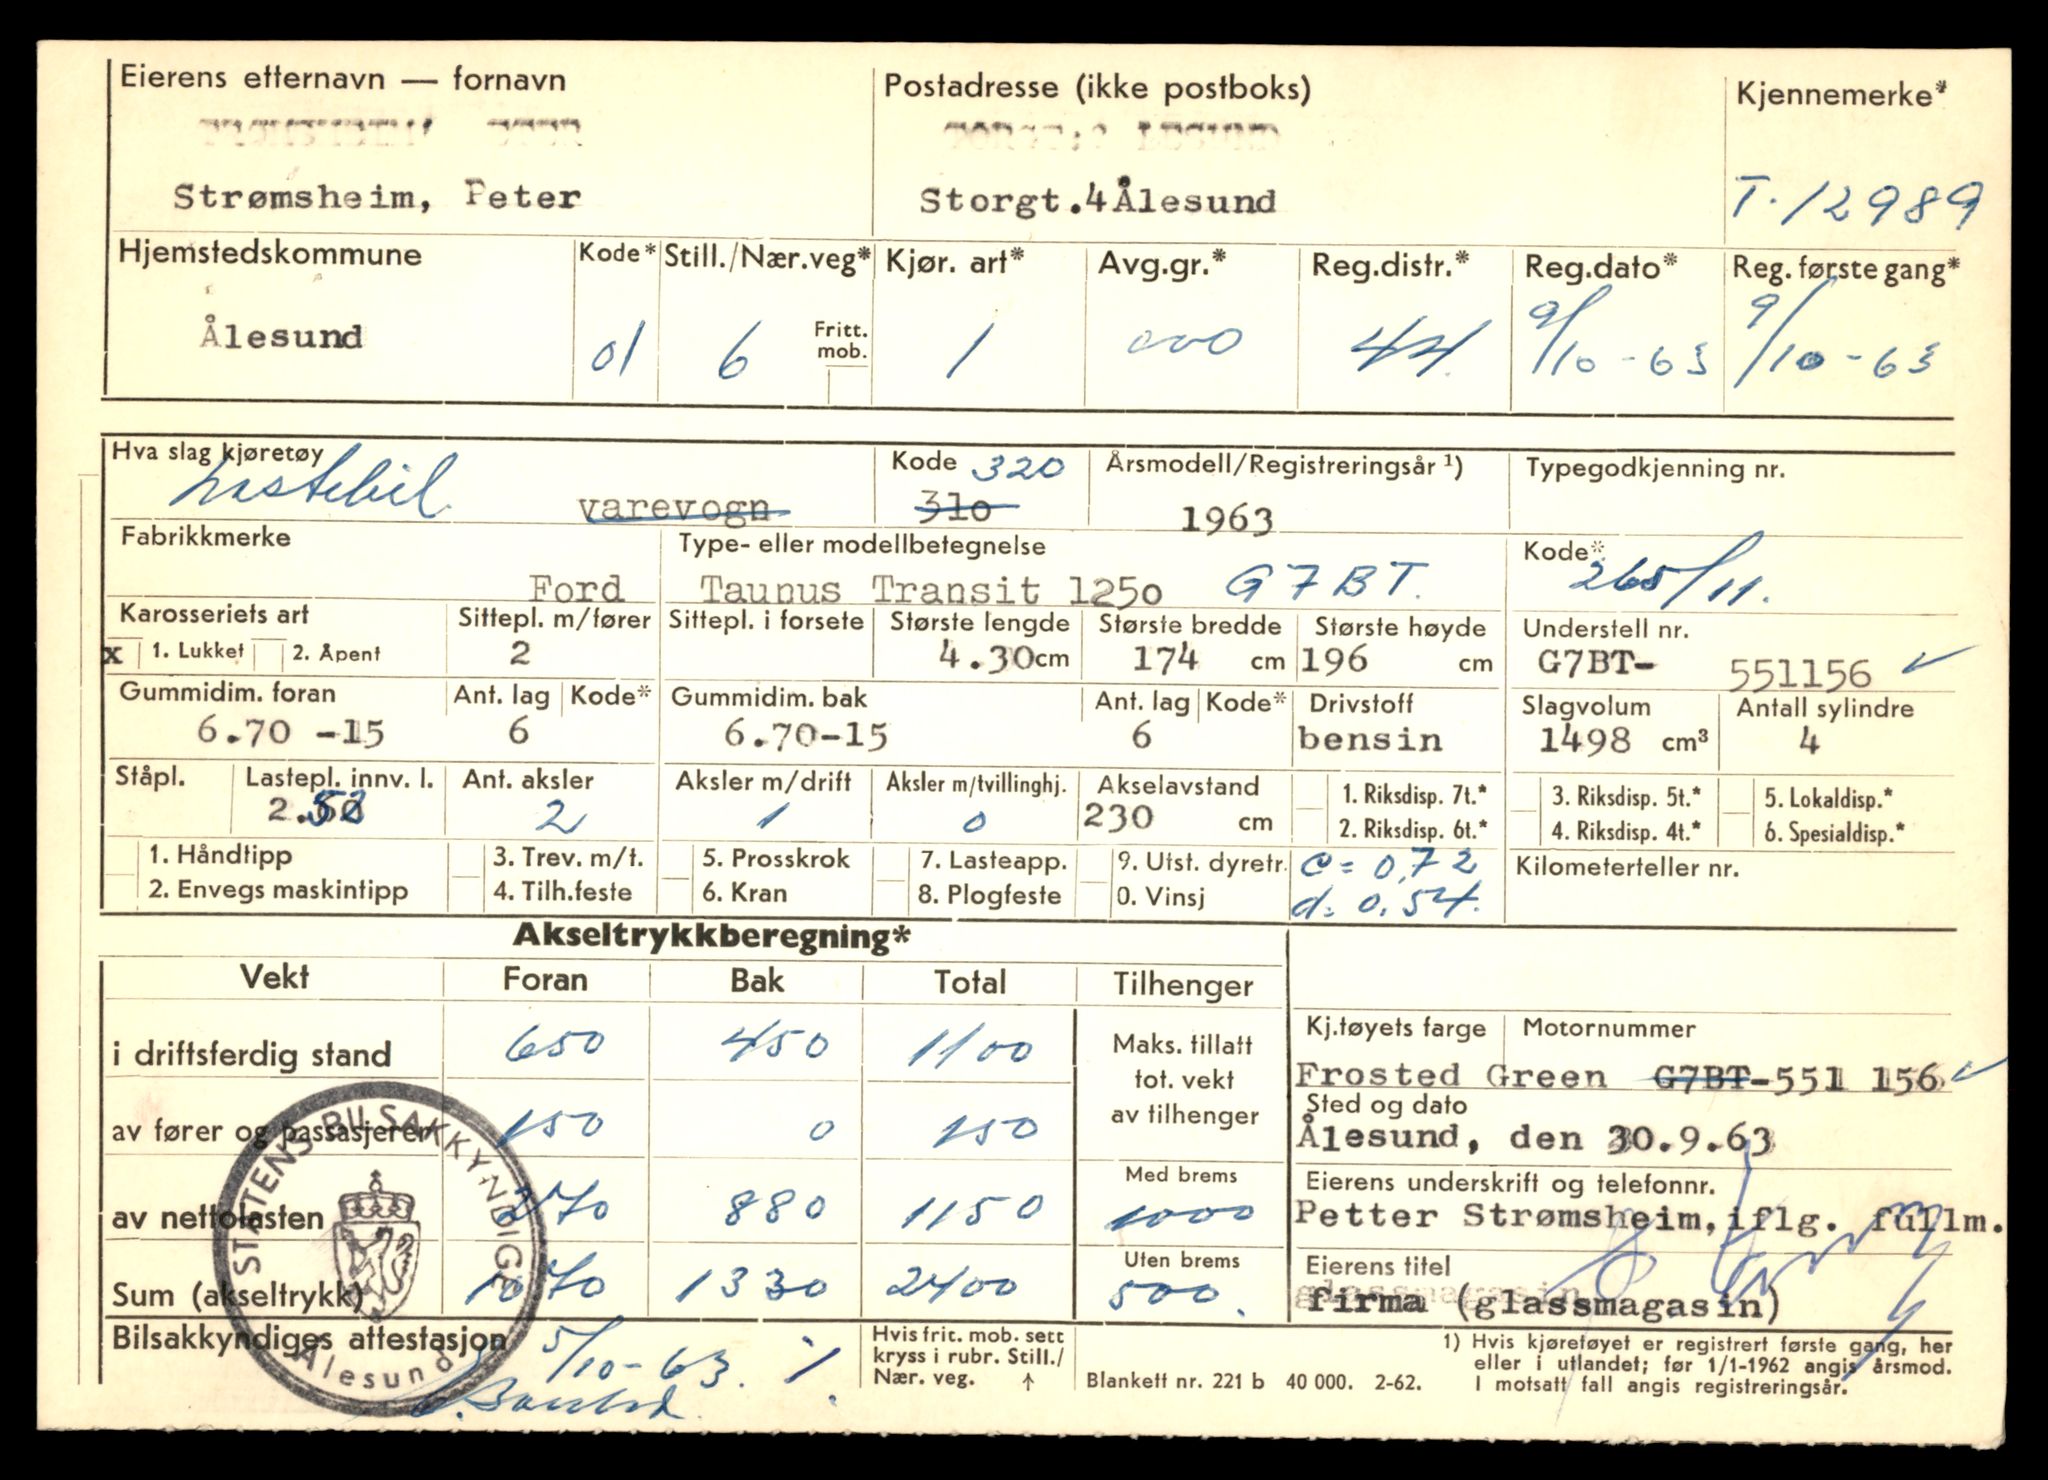 Eierens etternavn — fornavn
Postadresse (ikke postboks)
Kjennemerke*
Strømsheim, Peter
Storgt.4 Ålesund
T-12989
Hjemstedskommune
Kode*
Still./Nær.veg*
Kjør. art*
Avg.gr.*
Reg.distr.*
Reg.dato*
Reg. første gang*
Ålesund
01
6
Fritt. mob.
1
000
44.
9/10-63
9/10-63
Hva slag kjøretøy
Lastebil.
varevogn
Kode 320
310
Årsmodell/Registreringsår ¹)
1963
Typegodkjenning nr.
Fabrikkmerke
Ford
Type- eller modellbetegnelse
Taunus Transit 1250 G7BT.
Kode*
265/11.
Karosseriets art
x 1. Lukket 2. Åpent
Sittepl. m/fører
2
Sittepl. i forsete
Største lengde
4.30 cm
Største bredde
174 cm
Største høyde
196 cm
Understell nr.
G7BT- 551156
Gummidim. foran
6.70 -15
Ant. lag
6
Kode*
Gummidim. bak
6.70-15
Ant. lag
6
Kode*
Drivstoff
bensin
Slagvolum
1498 cm³
Antall sylindre
4
Ståpl.
Lastepl. innv. l.
Ant. aksler
2
Aksler m/drift
1
Aksler m/tvillinghj.
0
Akselavstand
230 cm
1. Riksdisp. 7t.*
2. Riksdisp. 6t.*
3. Riksdisp. 5t.*
4. Riksdisp. 4t.*
5. Lokaldisp.*
6. Spesialdisp.*
1. Håndtipp
2. Envegs maskintipp
3. Trev. m/t.
4. Tilh.feste
5. Prosskrok
6. Kran
7. Lasteapp.
8. Plogfeste
9. Utst. dyretr.
0. Vinsj
c = 0,72
d = 0.54.
Kilometerteller nr.
Akseltrykkberegning*
Vekt Foran Bak Total Tilhenger
i driftsferdig stand 650 450 1100
Maks. tillatt
tot. vekt
av tilhenger
av fører og passasjerer 150 0 150
Med brems
av nettolasten 270 880 1150 1000
Uten brems
Sum (akseltrykk) 1070 1330 2400 500.
Kj.tøyets farge
Frosted Green
Motornummer
G7BT-551 156
Sted og dato
Ålesund, den 30.9.63
Eierens underskrift og telefonnr.
Petter Strømsheim, iflg. fullm.
Eierens titel
glassmagasin
firma (glassmagasin)
Bilsakkyndiges attestasjon
5/10-63.
STATENS BILSAKKYNDIGE
Ålesund
Hvis frit. mob. sett
kryss i rubr. Still./
Nær. veg. ↑
Blankett nr. 221 b 40 000. 2-62.
1) Hvis kjøretøyet er registrert første gang, her
eller i utlandet; før 1/1-1962 angis årsmod.
I motsatt fall angis registreringsår.